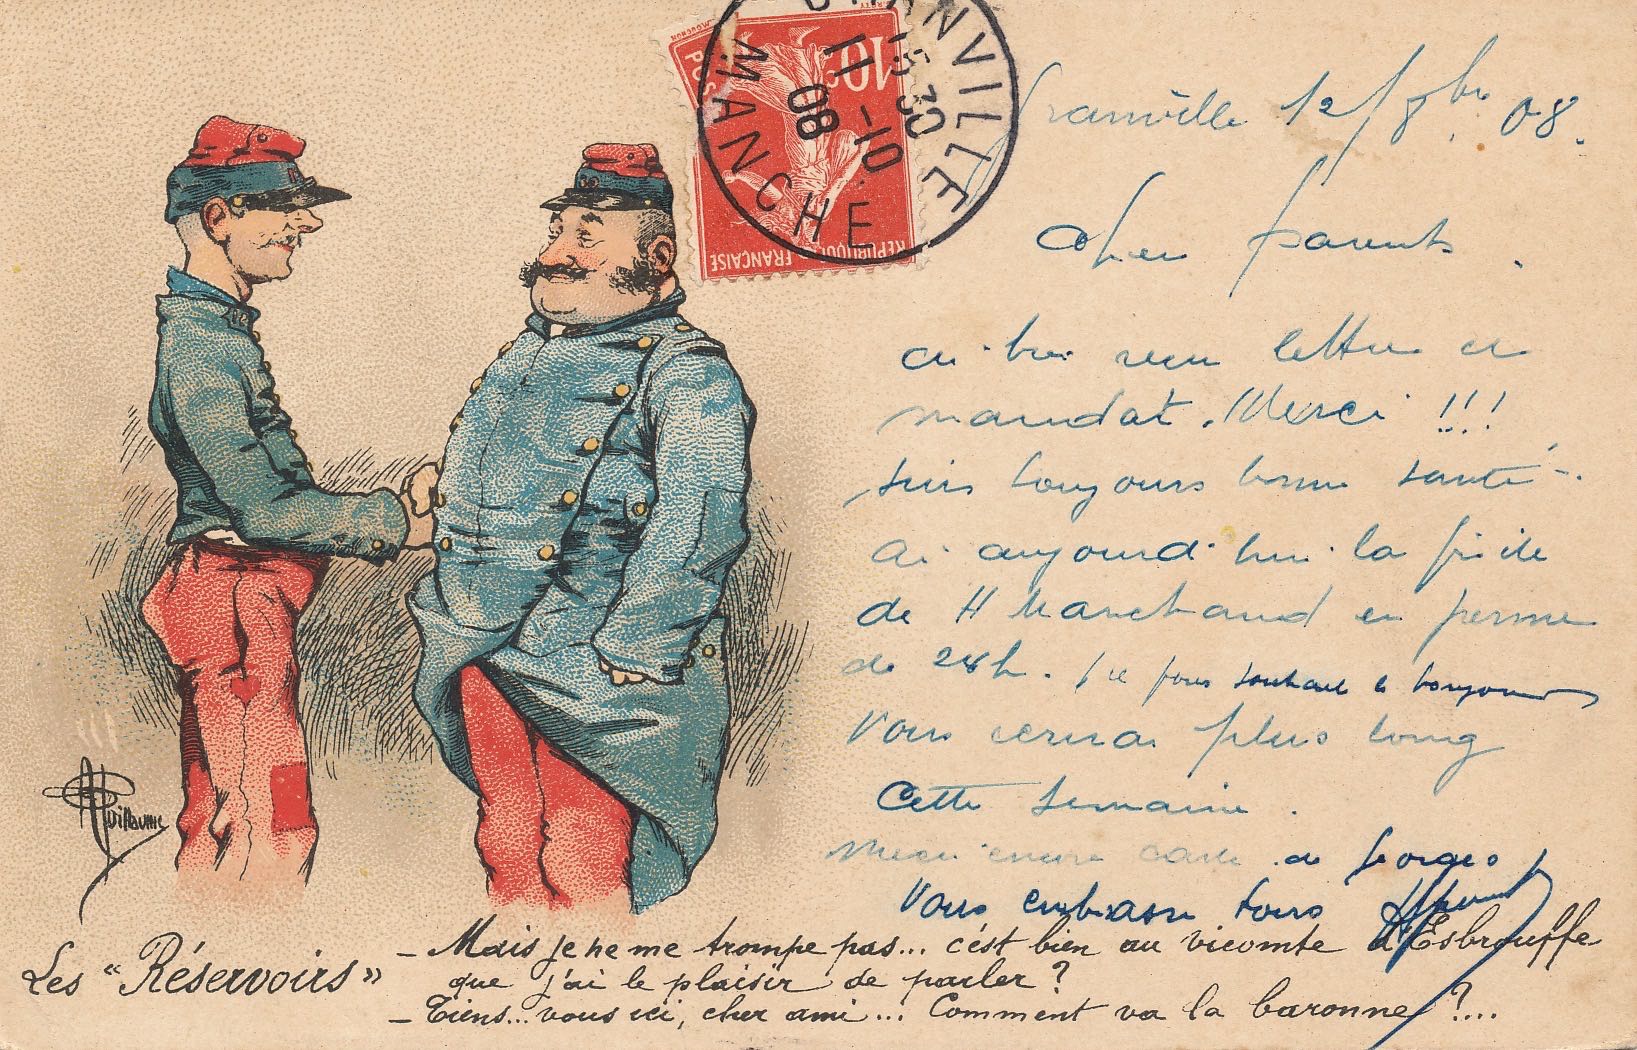 GRANVILLE
15 30
11 -10
08
MANCHE
10c
POSTES
RÉPUBLIQUE FRANÇAISE
Granville 12/8bre 08.
Cher parents.
ai bien reçu lettre et
mandat. Merci !!!
suis toujours bonne santé.
Ai aujourd'hui la visite
de H Marchand en perme
de 24h. Il vous souhaite le bonjour
Vous écrirai plus long
cette semaine.
encore carte de Georges
Vous embrasse tous
Guillaume
Les "Réservoirs"
- Mais je ne me trompe pas... c'est bien au vicomte d'Esbrouffe
que j'ai le plaisir de parler ?
- Tiens... vous ici, cher ami... Comment va la baronne ?....